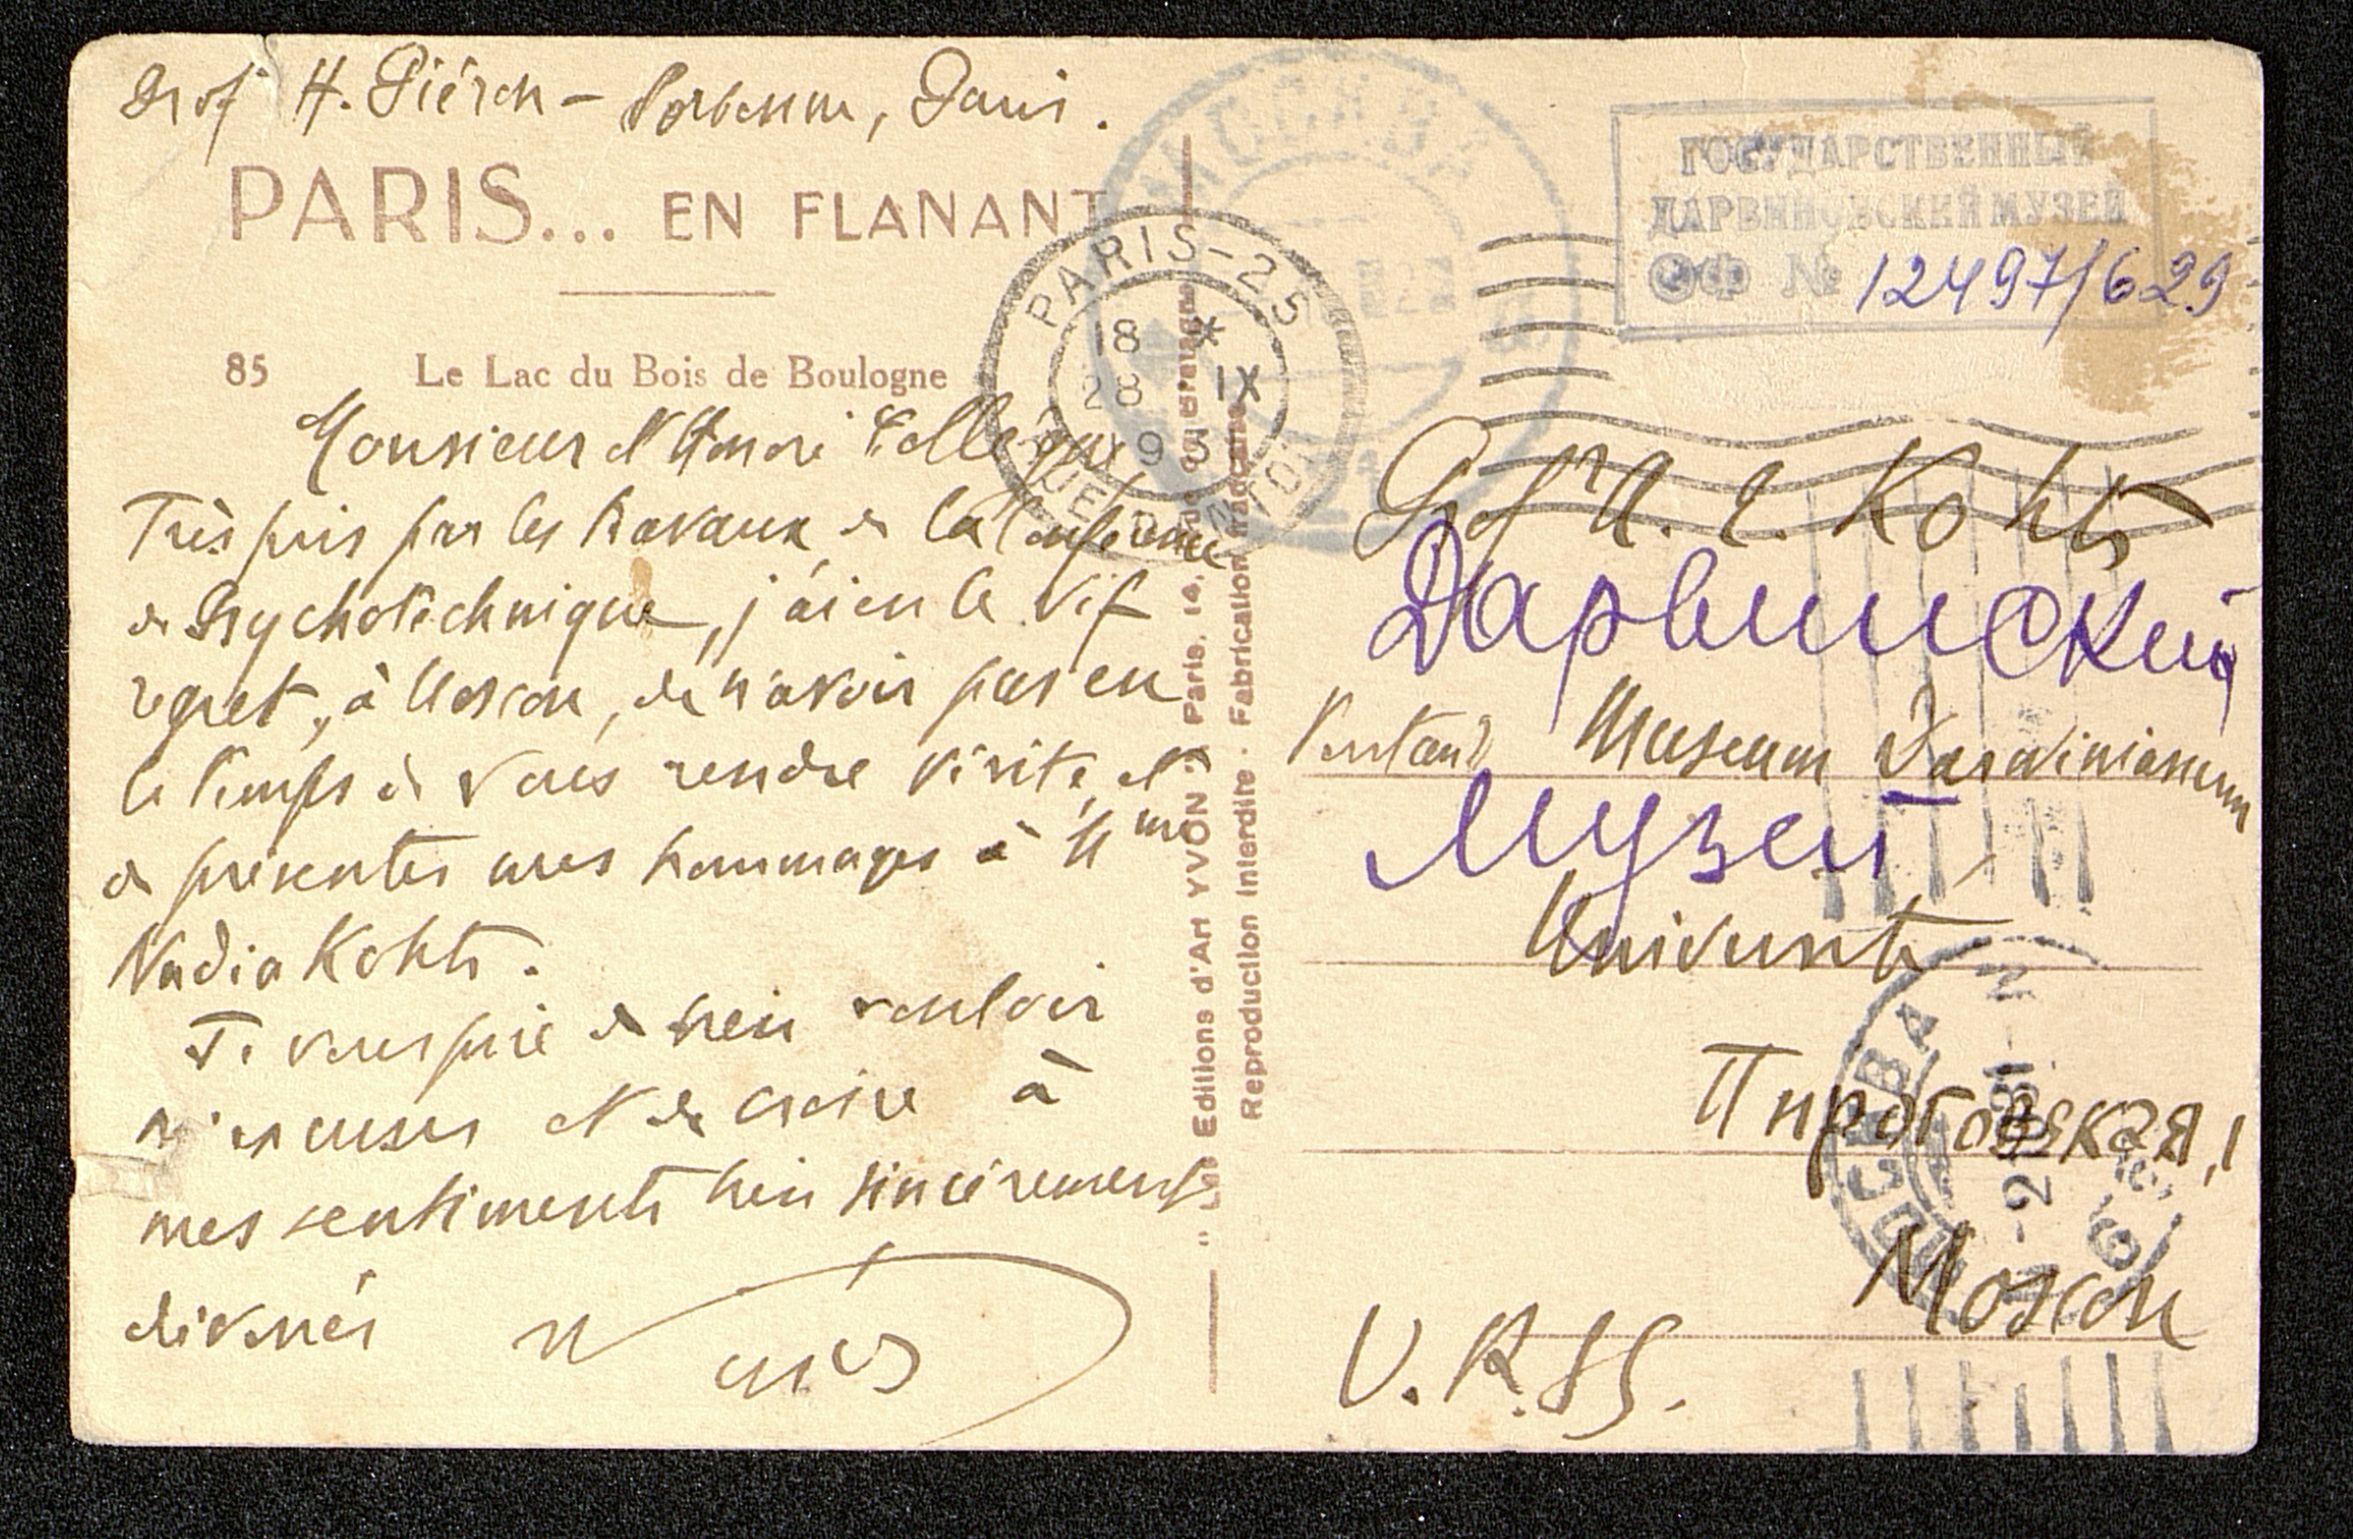 Prof H. Piéron – Sorbonne, Paris.
PARIS... EN FLANANT
85 Le Lac du Bois de Boulogne
Monsieur et Honoré Collègue
Très pris par les travaux de la Conférence
de Psychotechnique, j'ai eu le vif
regret, à Moscou, de n'avoir pas eu
le temps de vous rendre visite, et
de présenter mes hommages à Mme
Nadia Kohts.
Je vous prie de bien vouloir
m'excuser et de croire à
mes sentiments bien sincèrement
dévoués
"Les Editions d'Art YVON" Paris, 14, rue de Bretagne
Reproduction interdite - Fabrication française
МОСКВА
PARIS-25
18 *
28 IX
ГОСУДАРСТВЕННЫЙ
ДАРВИНОВСКИЙ МУЗЕЙ
ОФ № 12497/629
Prof Kohts
Дарвинский
Museum Darwinianum
Музей
Université
Пироговская, 1
Moscou
U.R.SS.
МОСКВА